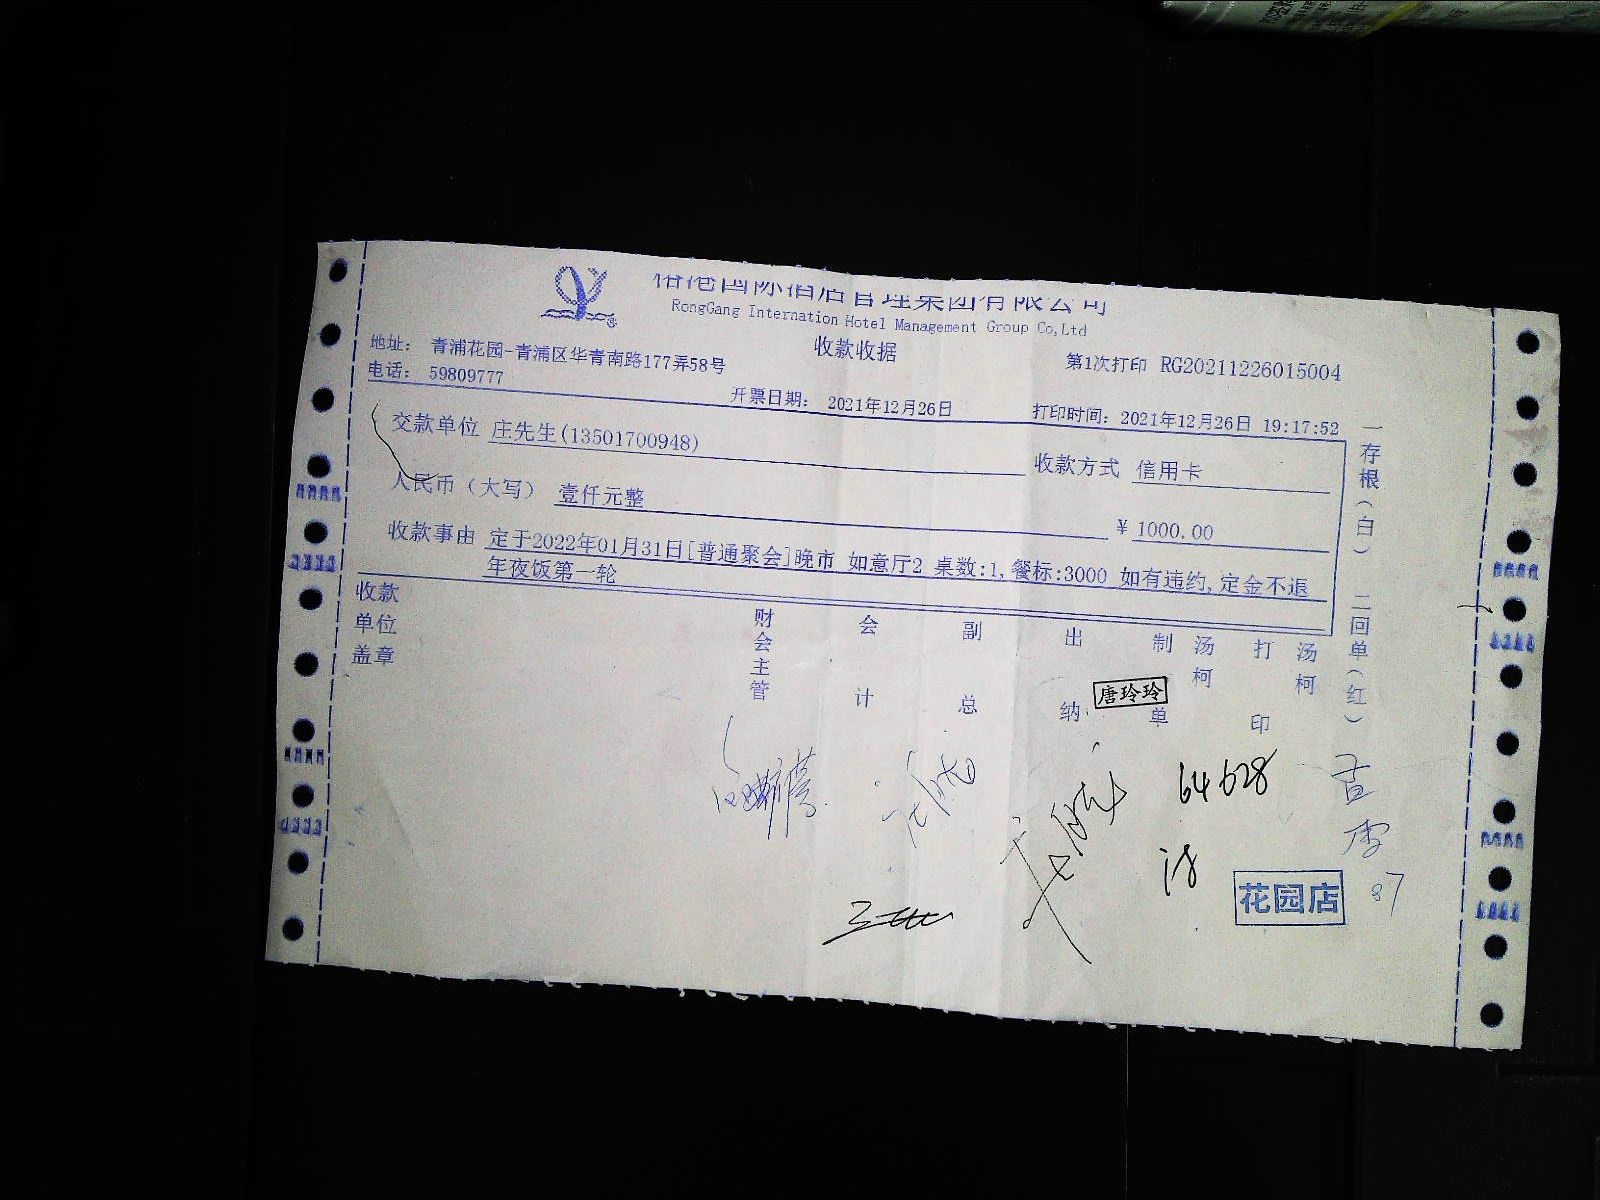 国际酒店管理集团有限公司
RongGang Internation Hotel Management Group Co,Ltd
收款收据
地址： 青浦花园-青浦区华青南路177弄58号
第1次打印 RG20211226015004
电话： 59809777
开票日期： 2021年12月26日
打印时间：2021年12月26日 19:17:52
交款单位 庄先生(13501700948)
收款方式 信用卡
人民币（大写） 壹仟元整
￥ 1000.00
收款事由 定于2022年01月31日[普通聚会]晚市 如意厅2 桌数:1,餐标:3000 如有违约,定金不退
年夜饭第一轮
收款单位盖章
财会主管
会计
副总
出纳
唐玲玲
制单
汤柯
打印
汤柯
一存根(白) 二回单(红)
64628
18
87
花园店